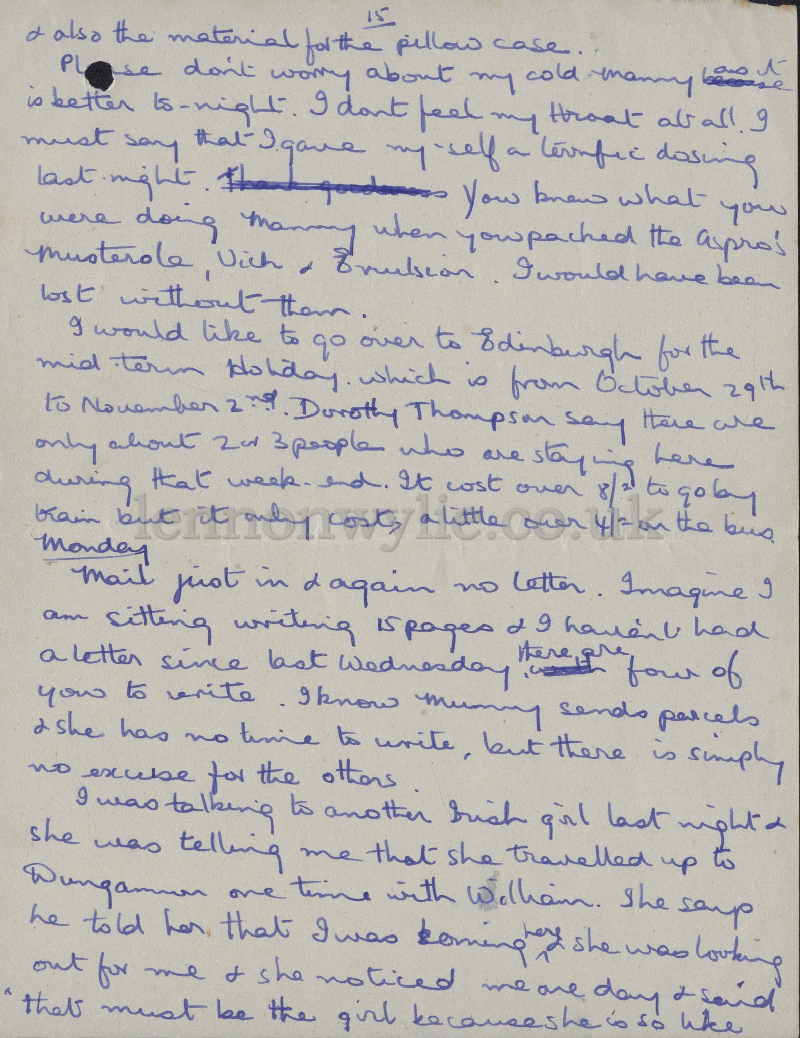 15
& also the material for the pillow case.
Please don't worry about my cold Mammy as it
is better to-night. I dont feel my throat at all. I
must say that I gave my-self a terrific dosing
last night. Thank goodness You knew what you
were doing Mammy when you packed the Aspro's
Musterole, Vick & Emulsion. I would have been
lost without them.
I would like to go over to Edinburgh for the
mid-term Holiday. which is from October 29th
to November 2nd. Dorothy Thompson say there are
only about 2 or 3 people who are staying here
during that week-end. It cost over 8/= to go by
train but it only costs a little over 4/= on the bus.
lennonwylie.co.uk
Monday
Mail just in & again no letter. Imagine I
am sitting writing 15 pages & I haven't had
a letter since last Wednesday. there are four of
you to write. I know Mummy sends parcels
& she has no time to write, but there is simply
no excuse for the others.
I was talking to another Irish girl last night &
she was telling me that she travelled up to
Dungannon one time with William. She says
he told her that I was coming here & she was looking
out for me & she noticed me one day & said
"that must be the girl because she is so like